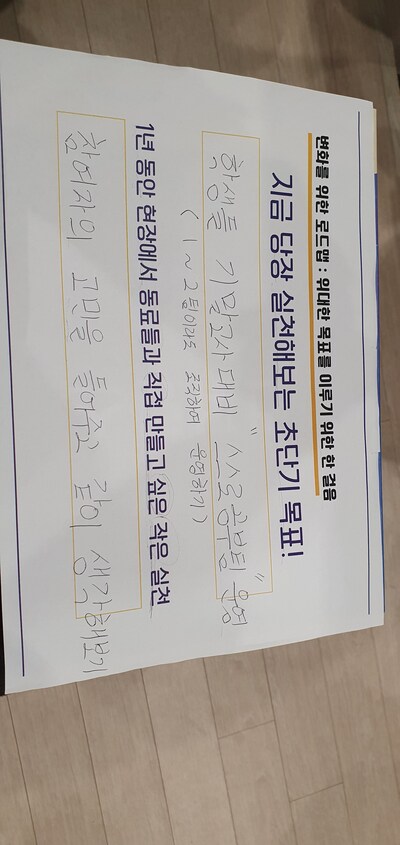 변화를 위한 로드맵 : 위대한 목표를 이루기 위한 한 걸음
지금 당장 실천해보는 초단기 목표!
학생들 기말고사 대비 "스스로공부팀" 운영
( 1~2팀이라도 조직하여 운영하기 )
1년 동안 현장에서 동료들과 직접 만들고 싶은 작은 실천
참여자의 고민을 들어주고 같이 생각해보기